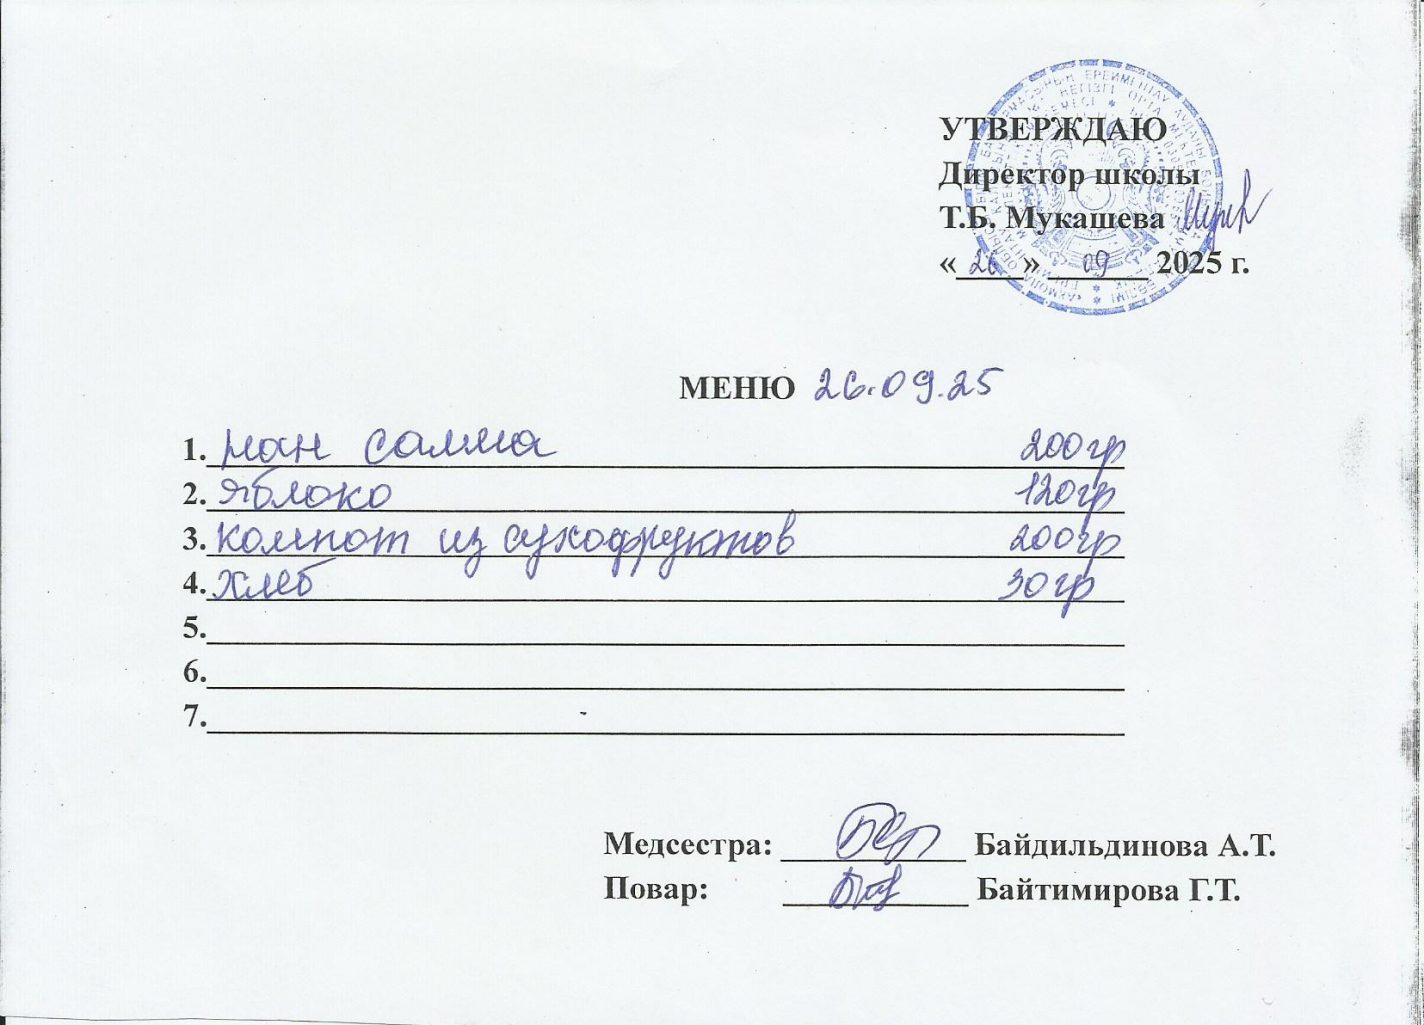 УТВЕРЖДАЮ
Директор школы
Т.Б. Мукашева
«26» 09 2025 г.
МЕНЮ 26.09.25
1. нан салма 200гр
2. яблоко 120гр
3. компот из сухофруктов 200гр
4. хлеб 30гр
5.
6.
7.
Медсестра: Байдильдинова А.Т.
Повар: Байтимирова Г.Т.